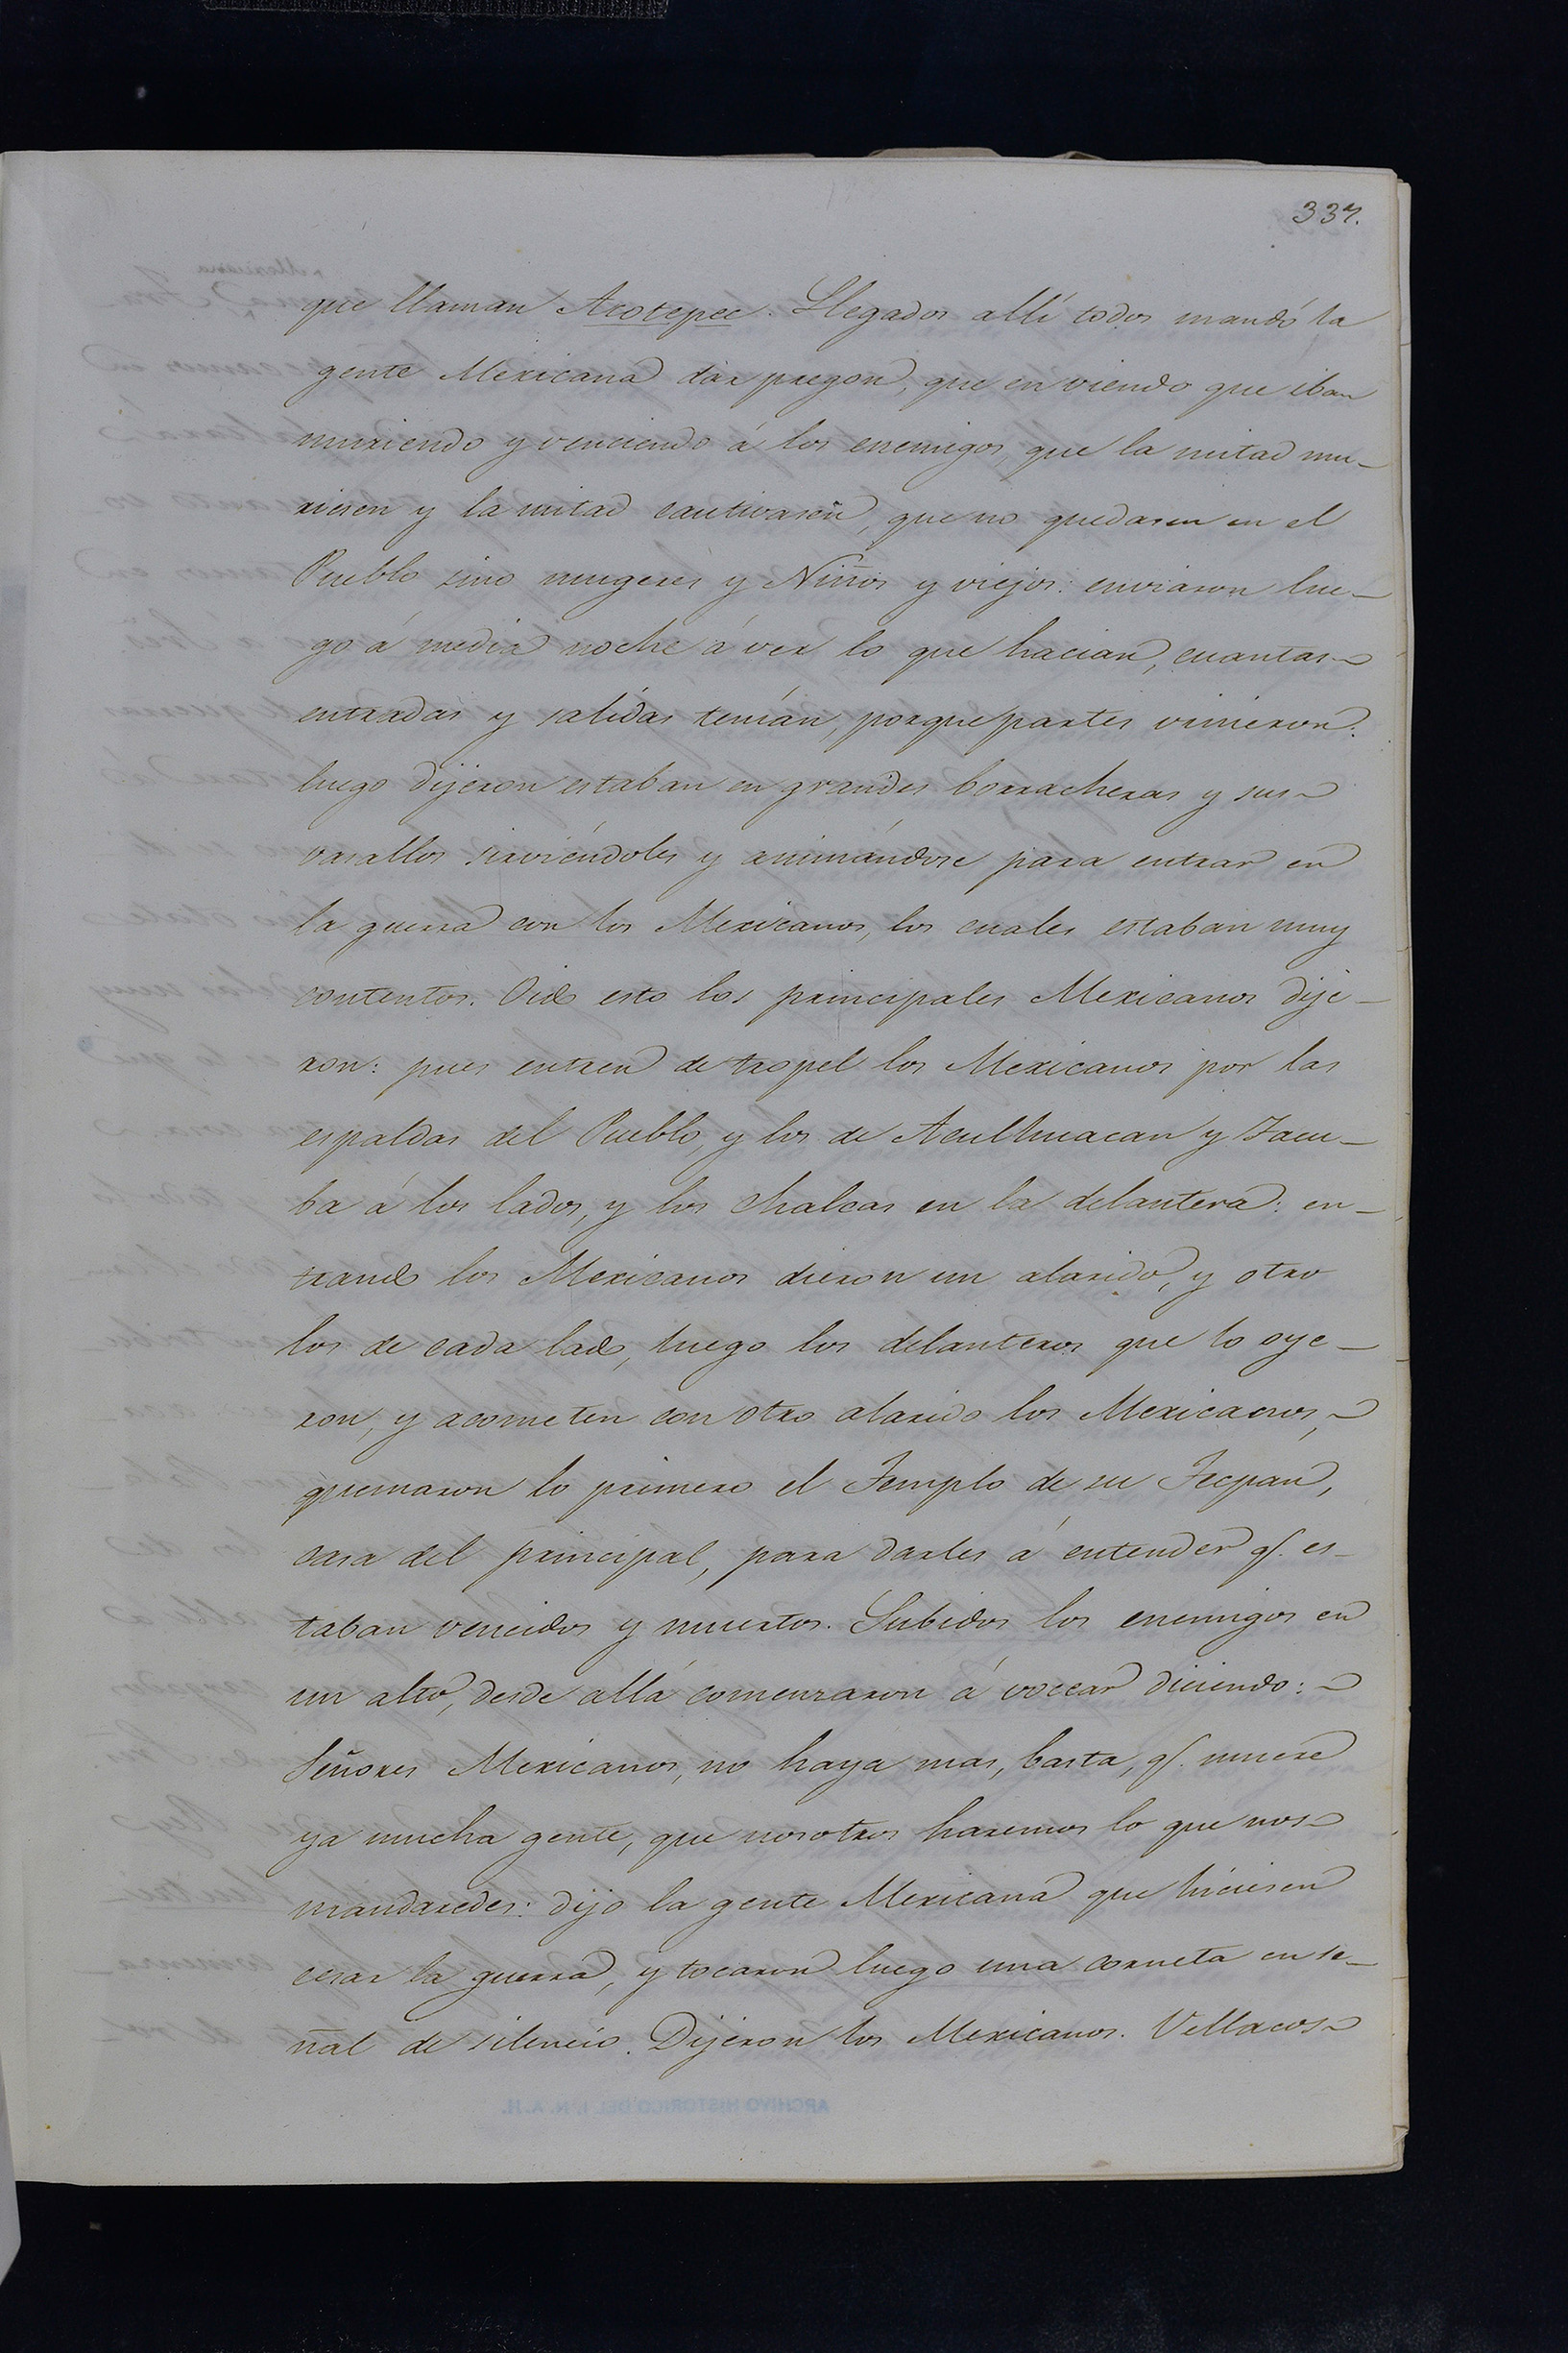 337.
que llaman Axotepec. Llegados allí todos mandó la
gente Mexicana dar pregon, que en viendo que iban
muriendo y venciendo á los enemigos, que la mitad mu-
riesen y la mitad cautivasen, que no quedasen en el
Pueblo sino mugeres y Niños y viejos: enviaron lue-
go á media noche á ver lo que hacian, cuantas
entradas y salidas tenían, porque partes vinieron:
luego dijeron estaban en grandes borracheras y sus
vasallos sirviéndoles y animándose para entrar en
la guerra con los Mexicanos, los cuales estaban muy
contentos. Oido esto los principales Mexicanos dije-
ron: pues entren de tropel los Mexicanos por las
espaldas del Pueblo, y los de Aculhuacan y Tacu-
ba á los lados, y los chalcas en la delantera: en-
trando los Mexicanos dieron un alarido, y otro
los de cada lado, luego los delanteros que lo oye-
ron, y acometen con otro alarido los Mexicanos,
quemaron lo primero el Templo de su Tecpan,
casa del principal, para darles á entender q. es-
taban vencidos y muertos. Subidos los enemigos en
un alto, desde allá comenzaron á vocear diciendo:
Señores Mexicanos, no haya mas, basta, q. muere
ya mucha gente, que nosotros haremos lo que nos
mandaredes: dijo la gente Mexicana que hiciesen
cesar la guerra, y tocaron luego una corneta en se-
ñal de silencio. Dijeron los Mexicanos. Vellacos
ARCHIVO HISTORICO DEL I. N. A. H.